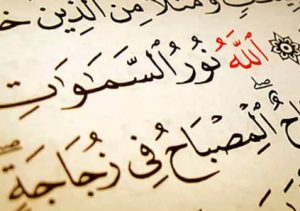 وَمَثَلًا مِنَ الَّذِينَ
اللَّهُ نُورُ السَّمٰوَاتِ
الْمِصْبَاحُ فِي زُجَاجَةٍ